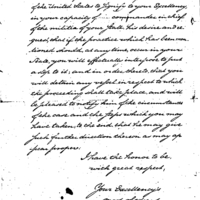 of the United States to signify to your Excellency
in your capacity of commander in chief
of the militia of your State, his desire and re-
quest, that if the practice which has been men-
tioned should, at any time, occur in your
State, you will effectually interpose to put
a stop to it, and in order thereto, that you
will obtain and report in respect to which
the proceeding shall take place, and will
be pleased to notify him of the circumstances
of the case and the steps which you may
have taken, to the end that he may give
such further direction thereon as may ap-
pear proper.
I have the honor to be,
with great respect,
Your Excellency's